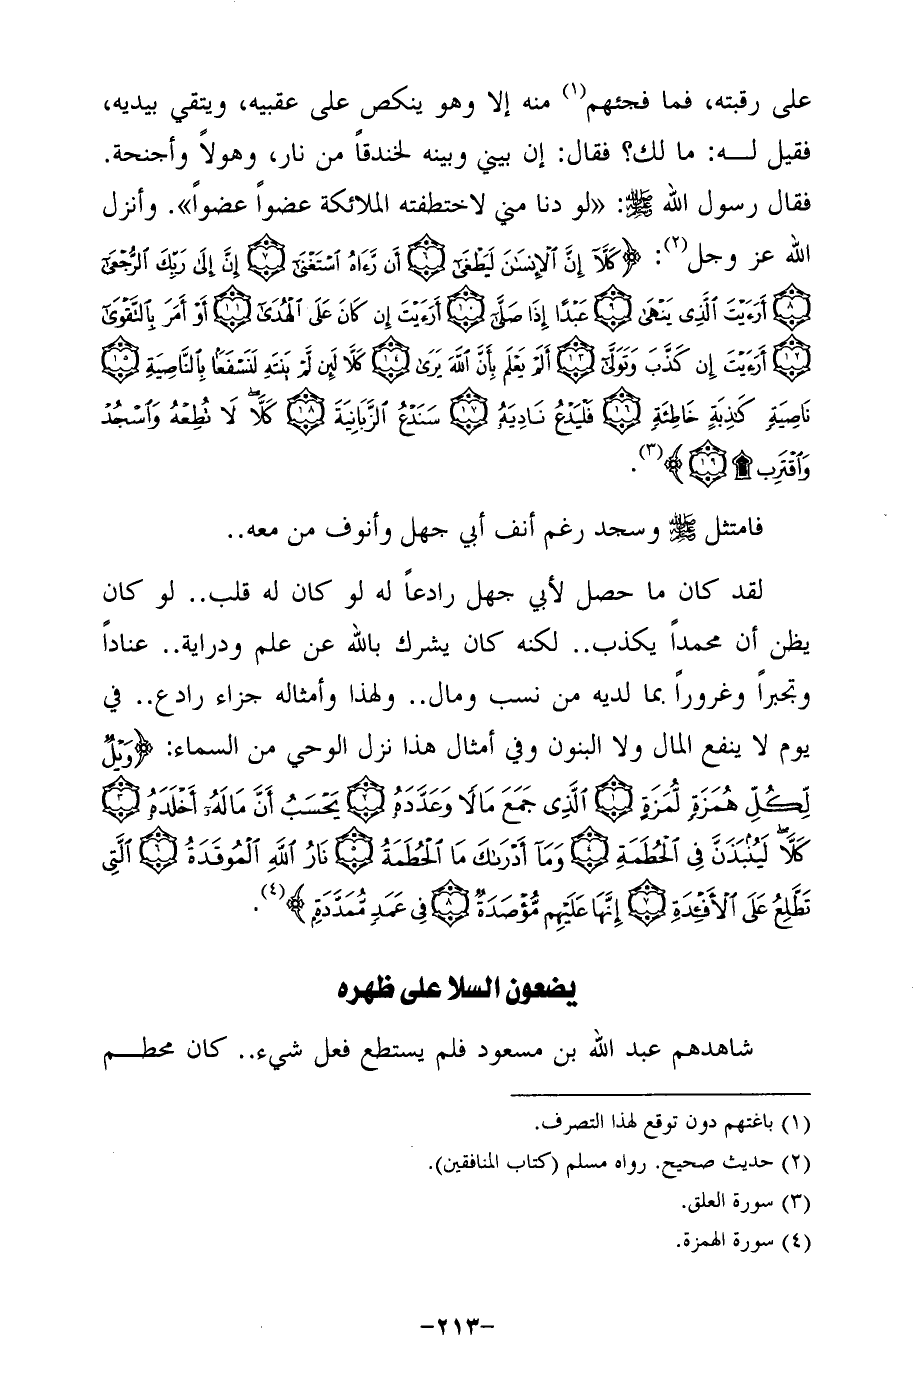 على رقبته، فما فجئهم(١) منه إلا وهو ينكص على عقبيه، ويتقي بيديه،
فقيل لــه: ما لك؟ فقال: إن بيني وبينه لخندقاً من نار، وهولاً وأجنحة.
فقال رسول الله ﷺ: «لو دنا مني لاختطفته الملائكة عضواً عضواً». وأنزل
الله عز وجل(٢): ﴿كَلَّآ إِنَّ ٱلْإِنسَٰنَ لَيَطْغَىٰٓ ۝٦ أَن رَّءَاهُ ٱسْتَغْنَىٰٓ ۝٧ إِنَّ إِلَىٰ رَبِّكَ ٱلرُّجْعَىٰٓ
۝٨ أَرَءَيْتَ ٱلَّذِى يَنْهَىٰ ۝٩ عَبْدًا إِذَا صَلَّىٰٓ ۝١٠ أَرَءَيْتَ إِن كَانَ عَلَى ٱلْهُدَىٰٓ ۝١١ أَوْ أَمَرَ بِٱلتَّقْوَىٰٓ
۝١٢ أَرَءَيْتَ إِن كَذَّبَ وَتَوَلَّىٰٓ ۝١٣ أَلَمْ يَعْلَم بِأَنَّ ٱللَّهَ يَرَىٰ ۝١٤ كَلَّا لَئِن لَّمْ يَنتَهِ لَنَسْفَعًۢا بِٱلنَّاصِيَةِ ۝١٥
نَاصِيَةٍ كَٰذِبَةٍ خَاطِئَةٍ ۝١٦ فَلْيَدْعُ نَادِيَهُۥ ۝١٧ سَنَدْعُ ٱلزَّبَانِيَةَ ۝١٨ كَلَّا لَا تُطِعْهُ وَٱسْجُدْ
وَٱقْتَرِب ۩ ۝١٩﴾(٣).
فامتثل ﷺ وسجد رغم أنف أبي جهل وأنوف من معه..
لقد كان ما حصل لأبي جهل رادعاً له لو كان له قلب.. لو كان
يظن أن محمداً يكذب.. لكنه كان يشرك بالله عن علم ودراية.. عناداً
وتجبراً وغروراً بما لديه من نسب ومال.. ولهذا وأمثاله جزاء رادع.. في
يوم لا ينفع المال ولا البنون وفي أمثال هذا نزل الوحي من السماء: ﴿وَيْلٌ
لِّكُلِّ هُمَزَةٍ لُّمَزَةٍ ۝١ ٱلَّذِى جَمَعَ مَالًا وَعَدَّدَهُۥ ۝٢ يَحْسَبُ أَنَّ مَالَهُۥٓ أَخْلَدَهُۥ ۝٣
كَلَّا لَيُنۢبَذَنَّ فِى ٱلْحُطَمَةِ ۝٤ وَمَآ أَدْرَىٰكَ مَا ٱلْحُطَمَةُ ۝٥ نَارُ ٱللَّهِ ٱلْمُوقَدَةُ ۝٦ ٱلَّتِى
تَطَّلِعُ عَلَى ٱلْأَفْـِٔدَةِ ۝٧ إِنَّهَا عَلَيْهِم مُّؤْصَدَةٌ ۝٨ فِى عَمَدٍ مُّمَدَّدَةٍ﴾(٤).
يضعون السلا على ظهره
شاهدهم عبد الله بن مسعود فلم يستطع فعل شيء.. كان محطــم
(١) باغتهم دون توقع لهذا التصرف.
(٢) حديث صحيح. رواه مسلم (كتاب المنافقين).
(٣) سورة العلق.
(٤) سورة الهمزة.
-٢١٣-